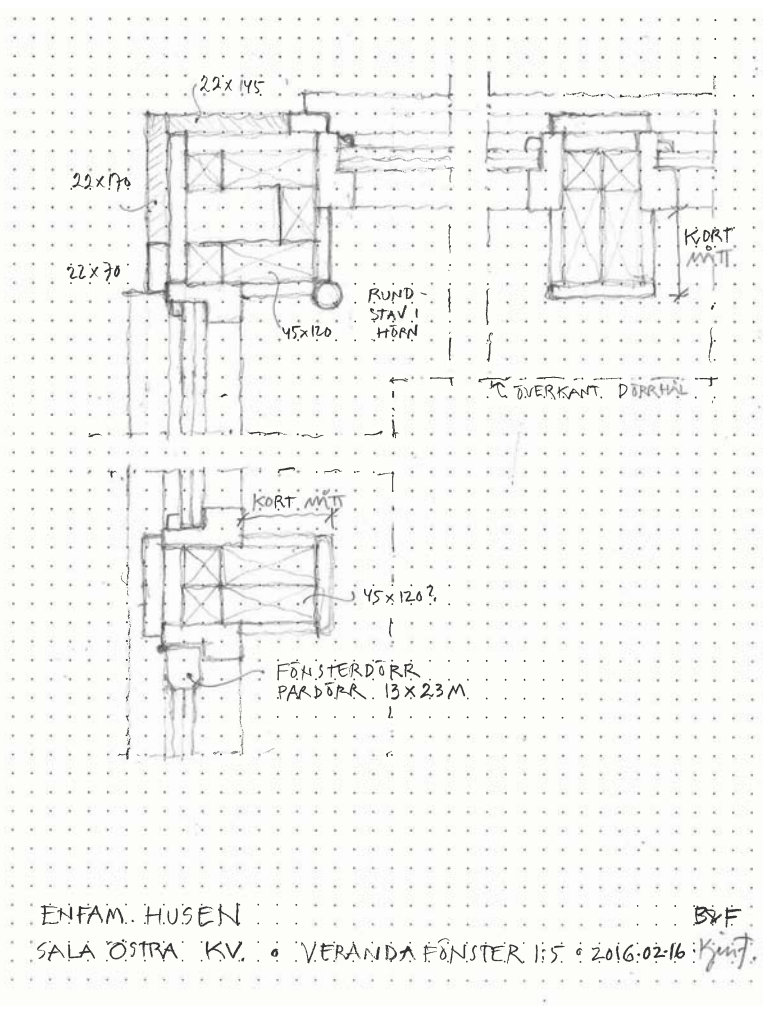 22x145
22x170
22x70
KORT
MÅTT
RUND-
STAV I
HÖRN
45x120
ÖVERKANT DÖRRHÅL
KORT MÅTT
45x120?
FÖNSTERDÖRR
PARDÖRR 13x23M
ENFAM. HUSEN
B&F
SALA ÖSTRA KV. • VERANDA FÖNSTER 1:5 • 2016.02.16